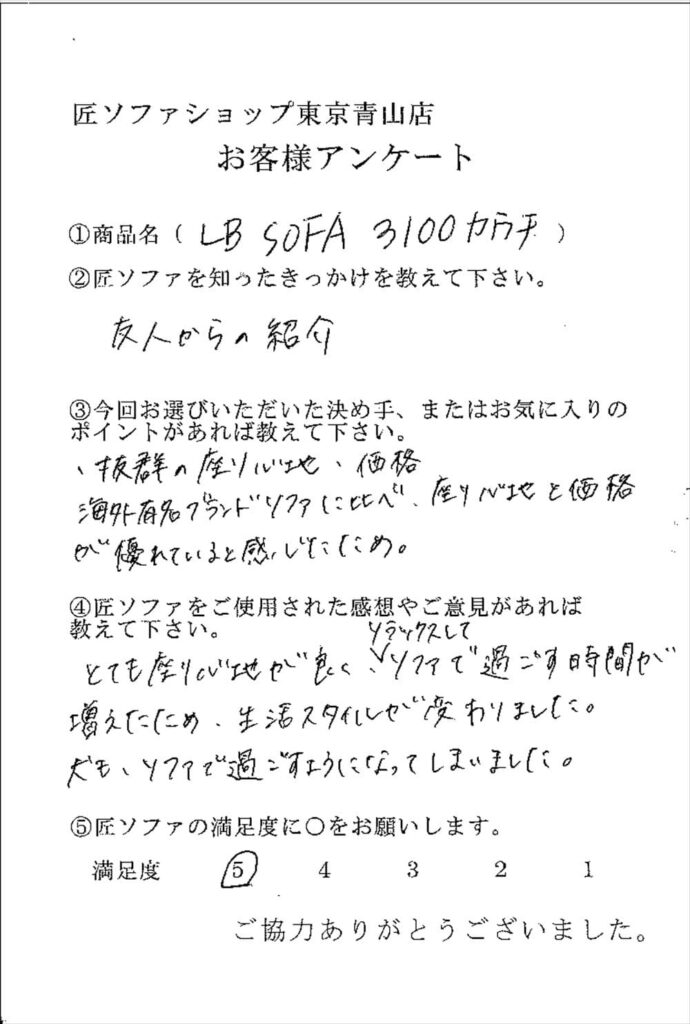 匠ソファショップ東京青山店
お客様アンケート
①商品名（ LB SOFA 3100カウチ ）
②匠ソファを知ったきっかけを教えて下さい。
友人からの紹介
③今回お選びいただいた決め手、またはお気に入りの
ポイントがあれば教えて下さい。
、抜群の座り心地、価格
海外有名ブランドソファに比べ、座り心地と価格
が優れていると感じたため。
④匠ソファをご使用された感想やご意見があれば
教えて下さい。
リラックスして
とても座り心地が良く、ソファで過ごす時間が
増えたため、生活スタイルが変わりました。
犬も、ソファで過ごすようになってしまいました。
⑤匠ソファの満足度に〇をお願いします。
満足度 5 4 3 2 1
ご協力ありがとうございました。